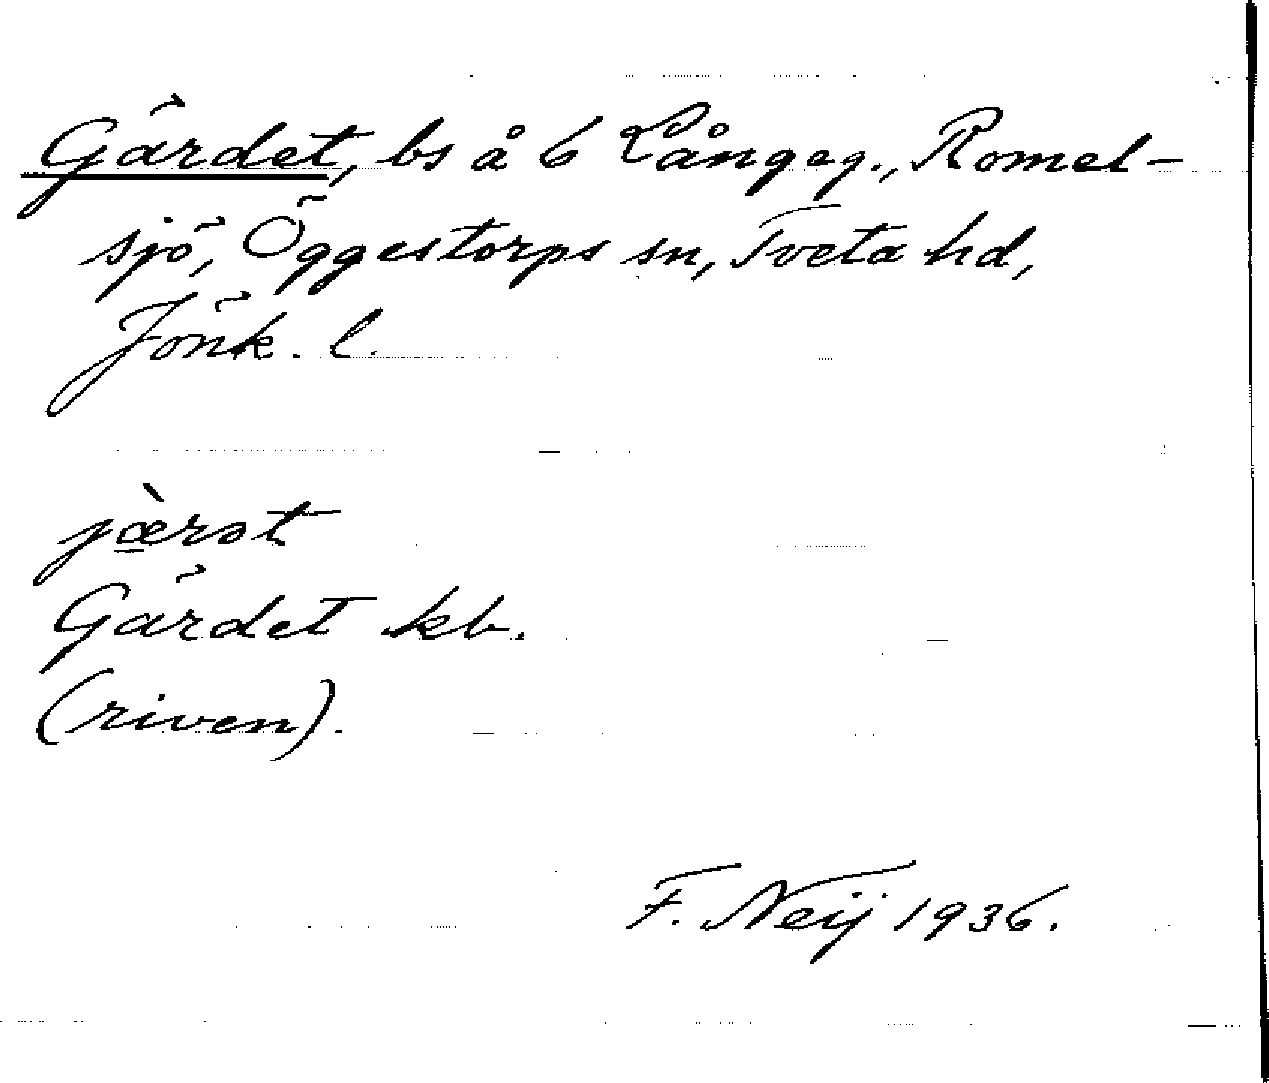 Gärdet, bs å 6 Långeg., Romel-
sjö, Öggestorps sn, Tveta hd,
Jönk. l.
jæ̀rət
Gärdet kb.
(riven).
F. Neij 1936.